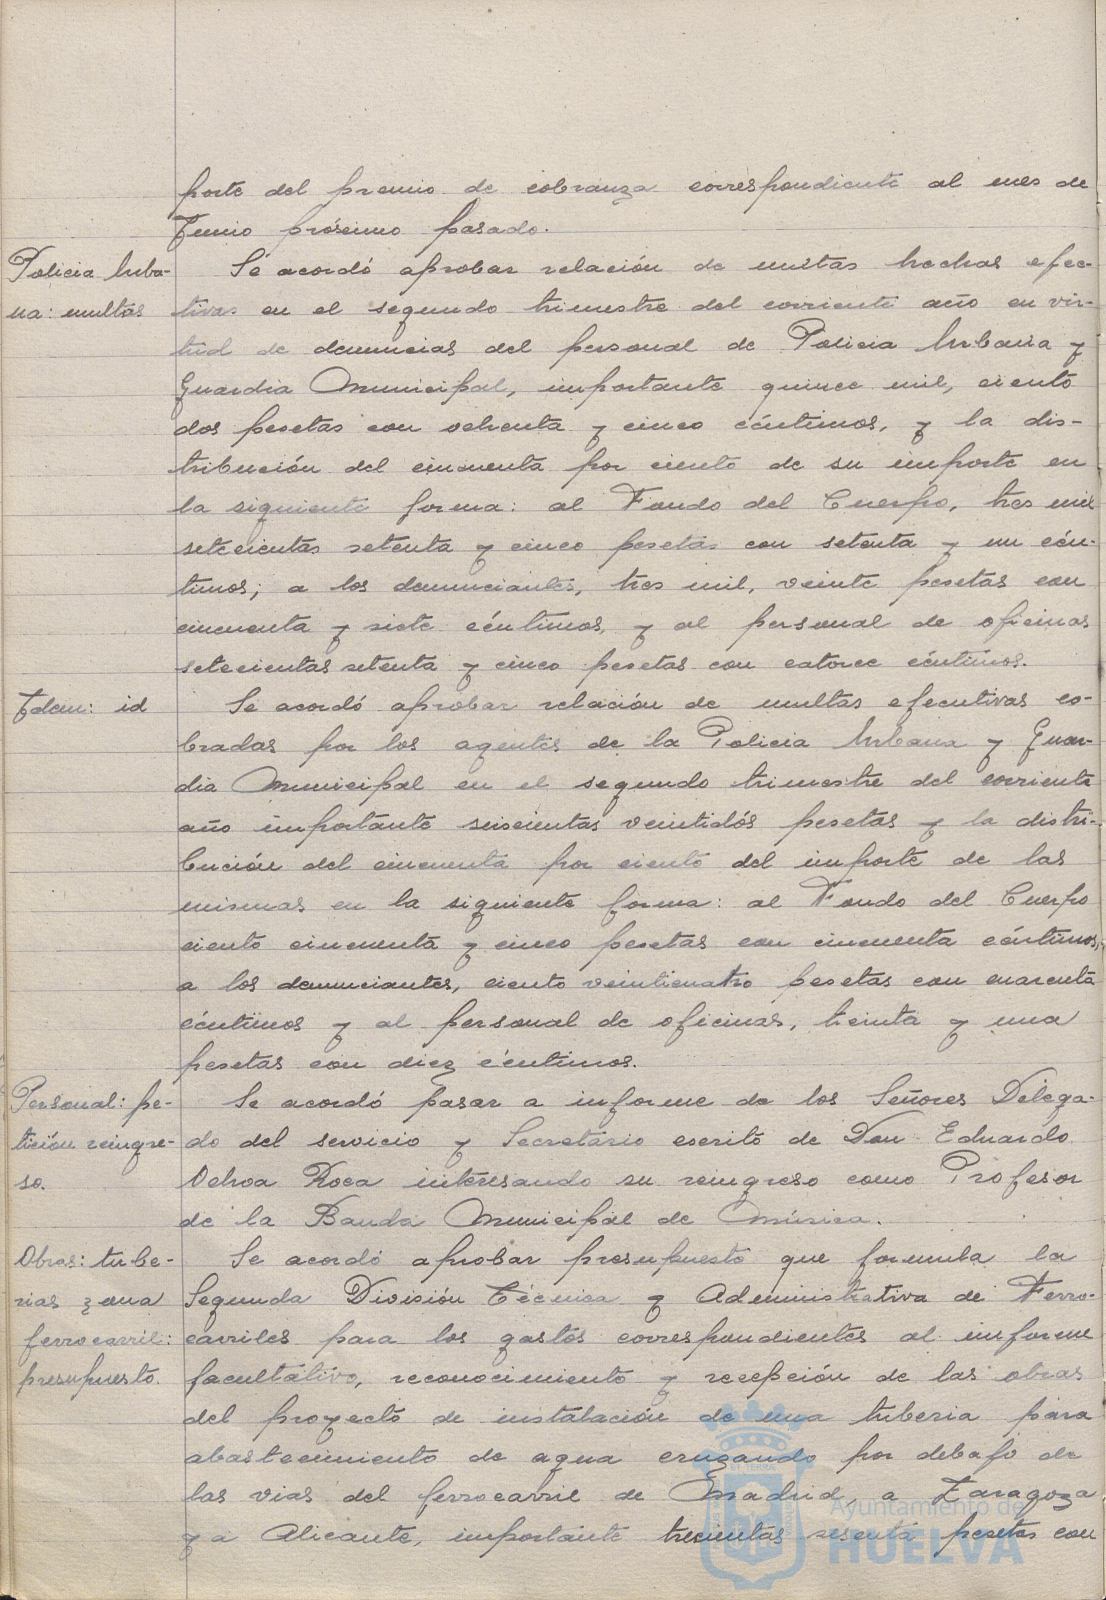 porte del premio de cobranza correspondiente al mes de
Junio próximo pasado.
Policia Urba-
na: multas
Se acordó aprobar relación de multas hechas efec-
tivas en el segundo trimestre del corriente año en vir-
tud de denuncias del personal de Policia Urbana y
Guardia Municipal, importante quince mil, ciento
dos pesetas con ochenta y cinco céntimos, y la dis-
tribución del cincuenta por ciento de su importe en
la siguiente forma: al Fondo del Cuerpo, tres mil
setecientas setenta y cinco pesetas con setenta y un cén-
timos; a los denunciantes, tres mil, veinte pesetas con
cincuenta y siete céntimos, y al personal de oficinas
setecientas setenta y cinco pesetas con catorce céntimos.
Idem: id
Se acordó aprobar relación de multas efecutivas co-
bradas por los agentes de la Policia Urbana y Guar-
dia Municipal en el segundo trimestre del corriente
año importante seiscientas veintidós pesetas y la distri-
bución del cincuenta por ciento del importe de las
mismas en la siguiente forma: al Fondo del Cuerpo
ciento cincuenta y cinco pesetas con cincuenta céntimos,
a los denunciantes, ciento veinticuatro pesetas con cuarenta
céntimos y al personal de oficinas, treinta y una
pesetas con diez céntimos.
Personal: pe-
tición reingre-
so.
Se acordó pasar a informe de los Señores Delega-
do del servicio y Secretario escrito de Don Eduardo
Ochoa Roca interesando su reingreso como Profesor
de la Banda Municipal de Música.
Obras: tube-
rias zona
ferrocarril:
presupuesto.
Se acordó aprobar presupuesto que formula la
Segunda División Técnica y Administrativa de Ferro-
carriles para los gastos correspondientes al informe
facultativo, reconocimiento y recepción de las obras
del proyecto de instalación de una tuberia para
abastecimiento de agua cruzando por debajo de
las vias del ferrocarril de Madrid a Zaragoza
y a Alicante, importante trescientas sesenta pesetas con
Ayuntamiento de
HUELVA